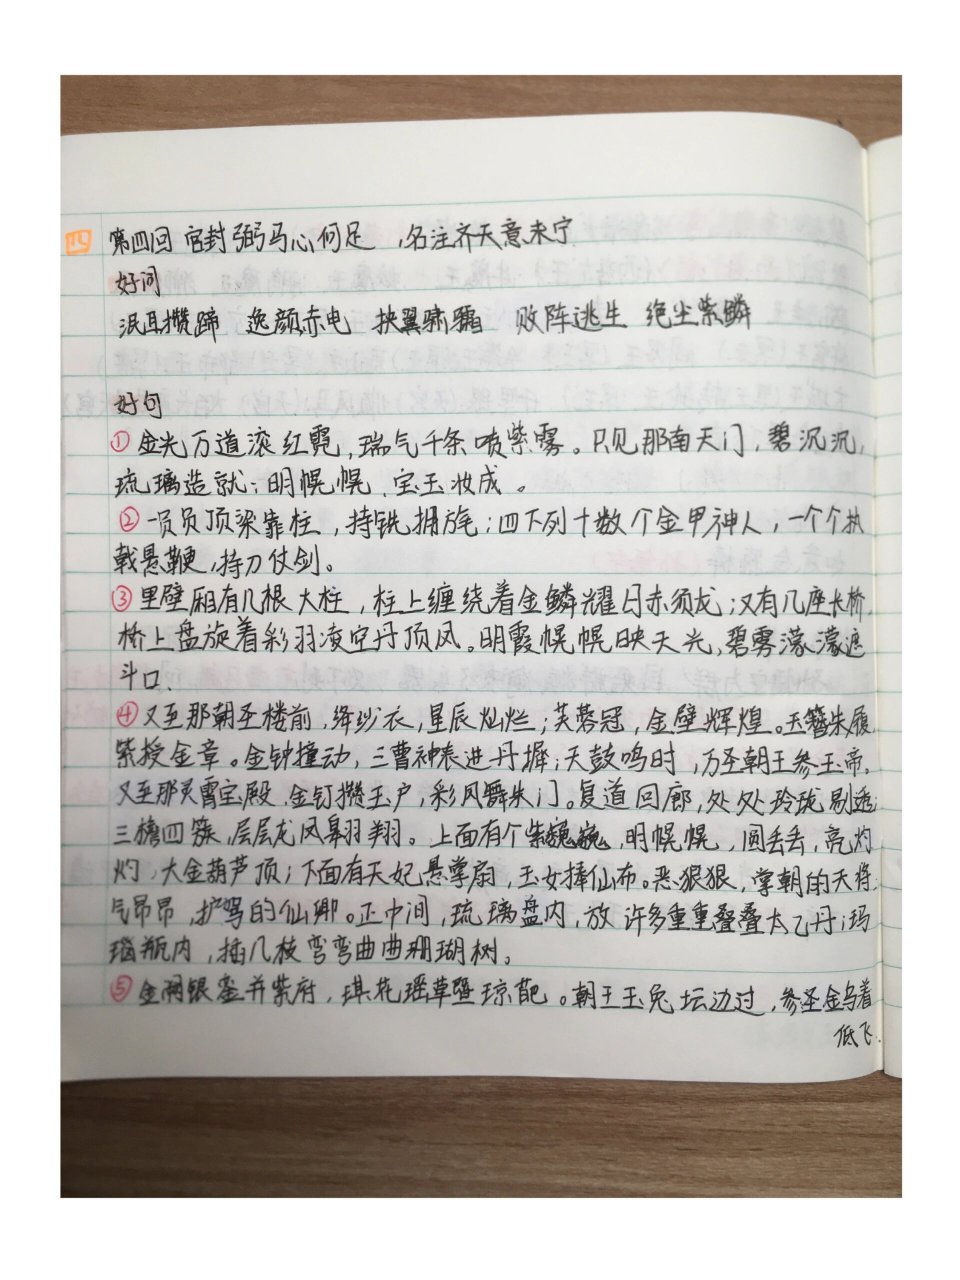 四 第四回 官封弼马心何足 ,名注齐天意未宁
好词
泯耳攒蹄 逸颜赤电 挟翼骕骦 败阵逃生 绝尘紫鳞
好句
①金光万道滚红霓,瑞气千条喷紫雾。只见那南天门,碧沉沉,
琉璃造就;明幌幌、宝玉妆成。
②一员员顶梁靠柱,持铣拥旄;四下列十数个金甲神人,一个个执
戟悬鞭,持刀仗剑。
③里壁厢有几根大柱,柱上缠绕着金鳞耀日赤须龙;又有几座长桥,
桥上盘旋着彩羽凌空丹顶凤。明霞幌幌映天光,碧雾濛濛遮
斗口.
④又至那朝圣楼前,绛纱衣,星辰灿烂;芙蓉冠,金壁辉煌。玉簪朱履,
紫授金章。金钟撞动,三曹神表进丹墀;天鼓鸣时,万圣朝王参玉帝.
又至那灵霄宝殿,金钉攒玉户,彩凤舞朱门。复道回廊,处处玲珑剔透;
三檐四簇,层层龙凤翱翔。上面有个紫巍巍,明幌幌,圆丢丢,亮灼
灼,大金葫芦顶;下面有天妃悬掌扇,玉女捧仙布。恶狠狠,掌朝的天将,
气昂昂,护驾的仙卿。正中间,琉璃盘内,放许多重重叠叠太乙丹;玛
瑙瓶内,插几枝弯弯曲曲珊瑚树。
⑤金阙银銮并紫府,琪花瑶草暨琼葩。朝王玉兔坛边过,参圣金乌着
低飞.